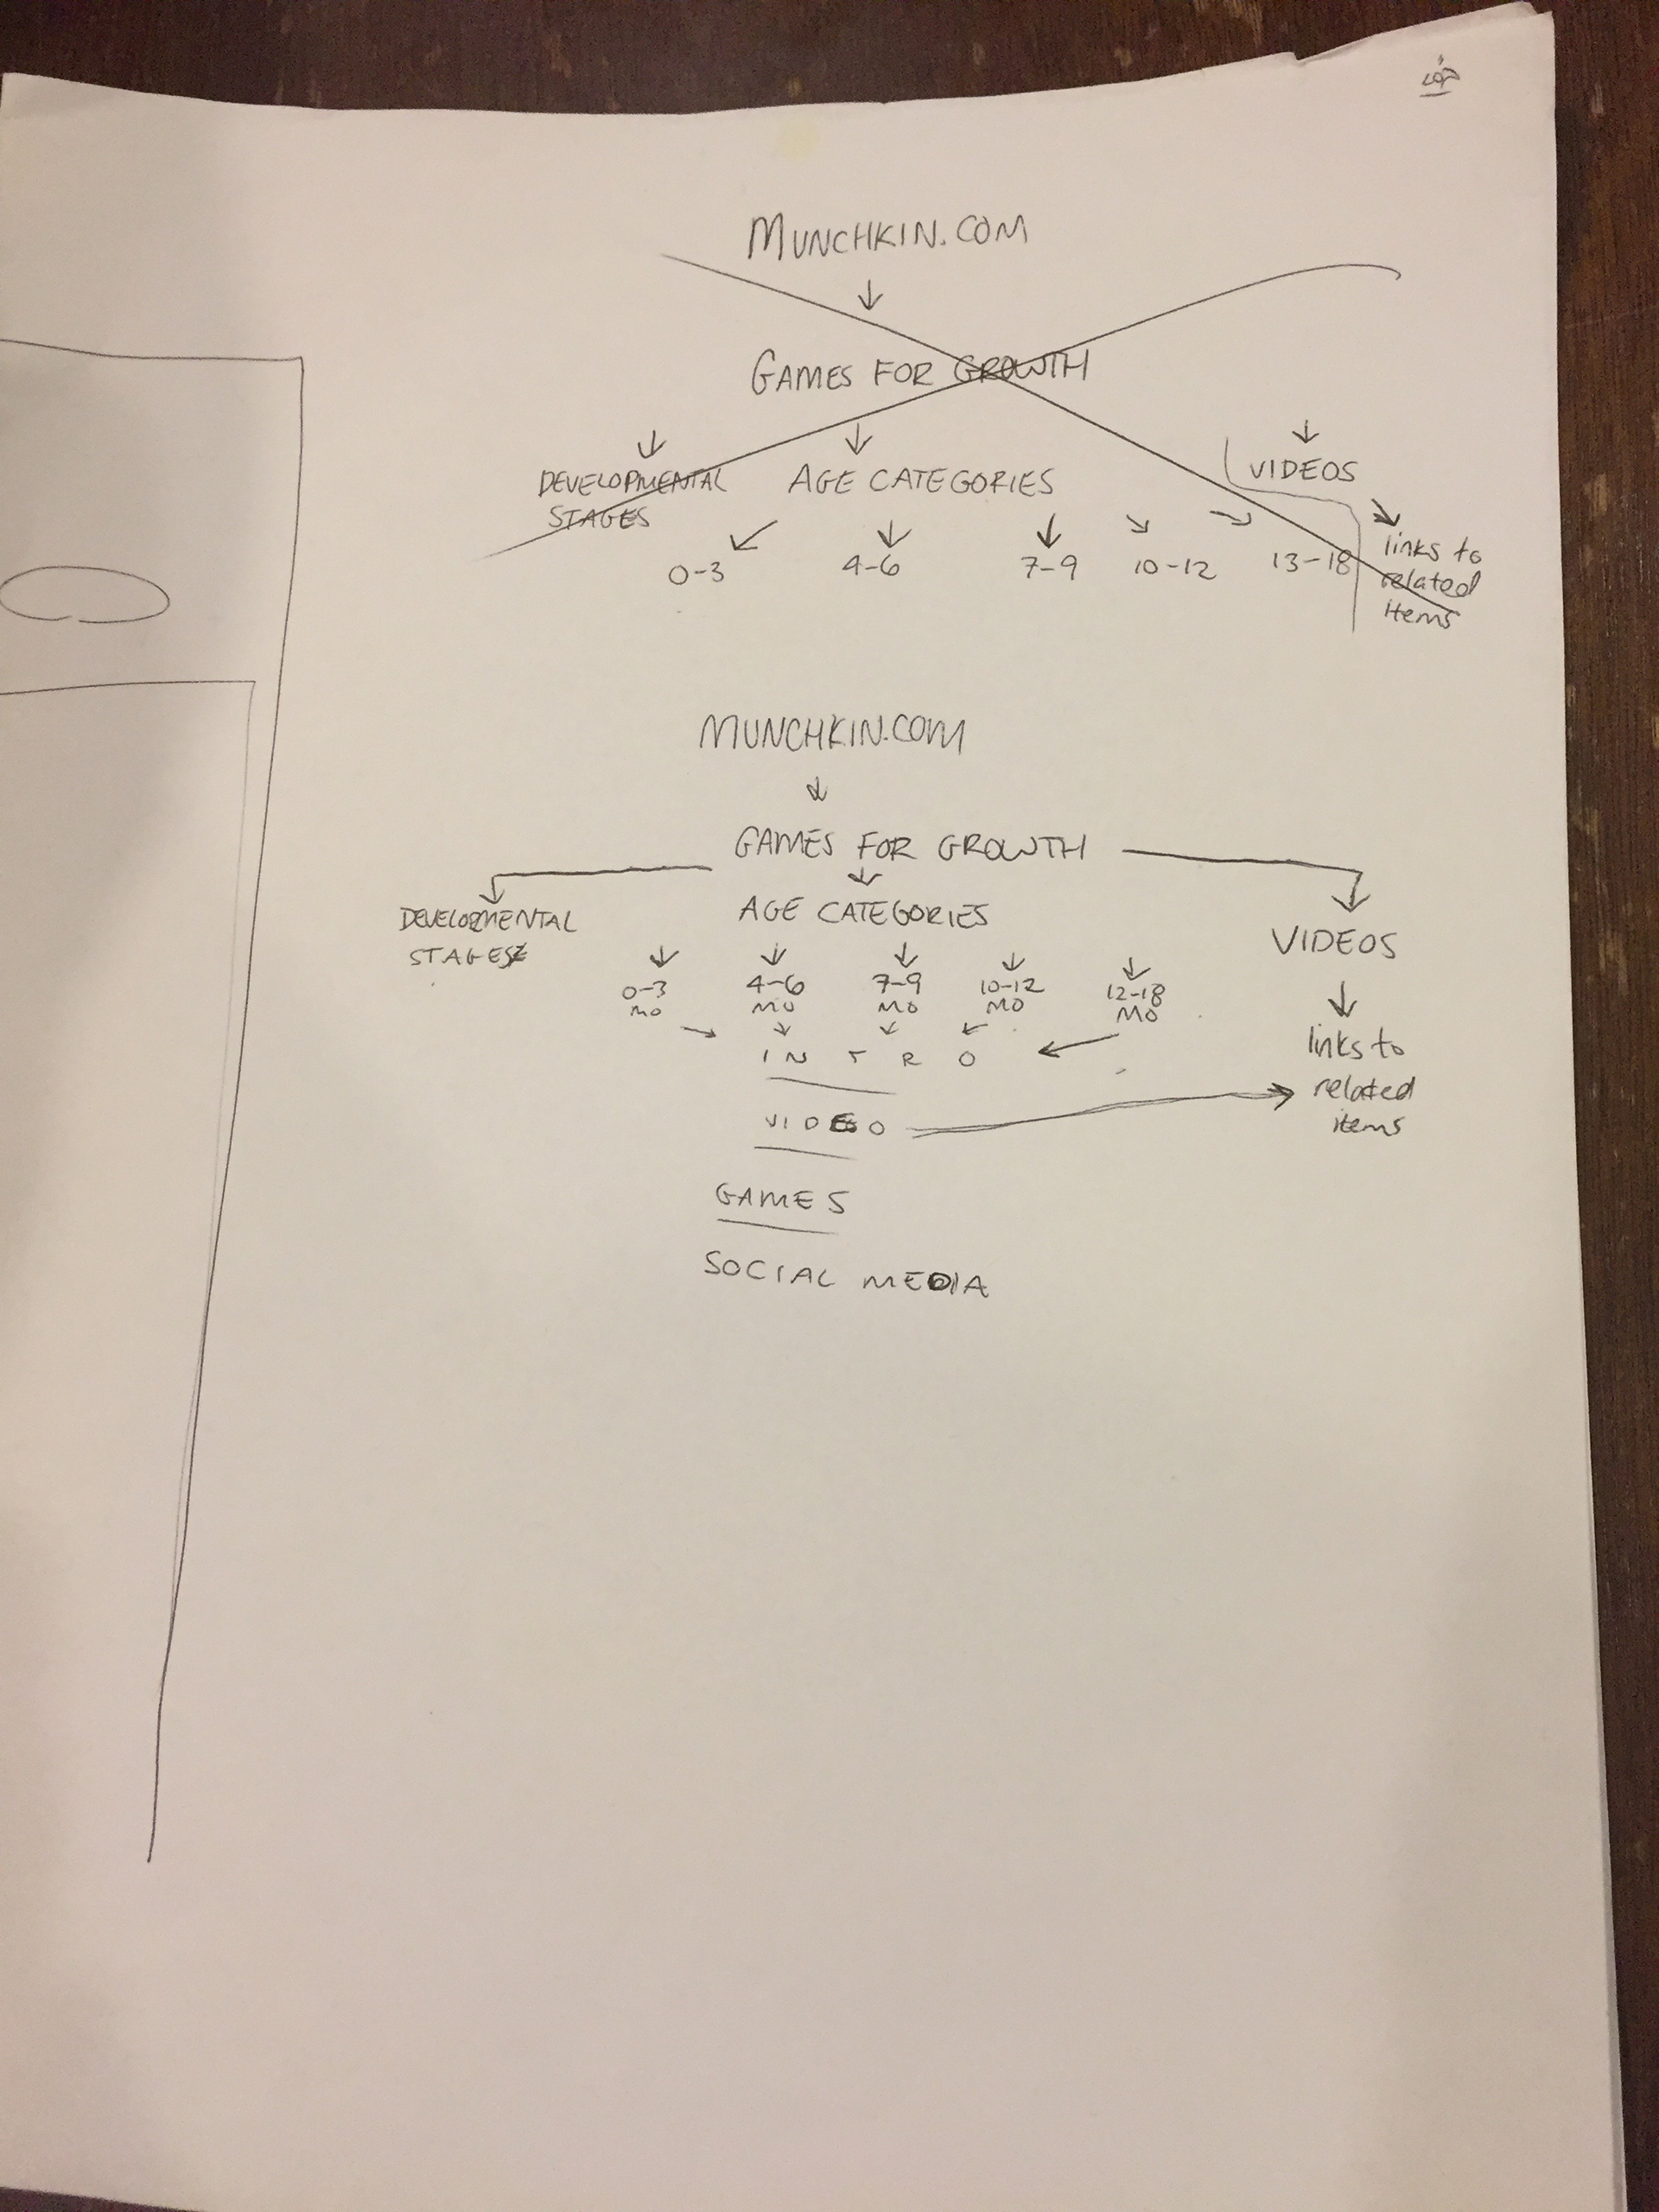 MUNCHKIN.COM
GAMES FOR GROWTH
DEVELOPMENTAL STAGES
AGE CATEGORIES
VIDEOS
0-3 4-6 7-9 10-12 13-18
links to
related
items
MUNCHKIN.COM
GAMES FOR GROWTH
DEVELOPMENTAL
STAGES
AGE CATEGORIES
VIDEOS
0-3 4-6 7-9 10-12 12-18
MO MO MO MO MO
INTRO
links to
related
items
VIDEO
GAMES
SOCIAL MEDIA